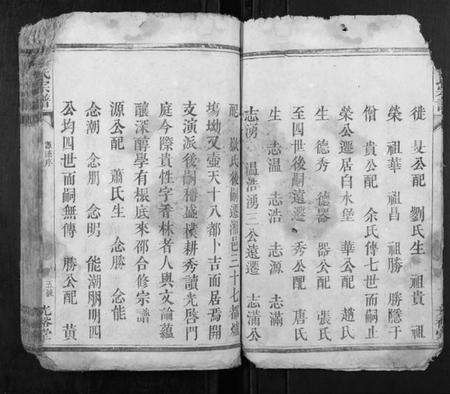 徙 旻公配 劉氏生 祖貴 祖
榮 祖華 祖昌 祖勝 勝隱于
僧 貴公配 余氏傳七世而嗣止
榮公遷居白水堡 華公配 趙氏
生 德秀 德器 器公配 張氏
至四世後嗣遠遷 秀公配 唐氏
生 志溫 志浩 志源 志滿
志湧 溫浩湧三公遠遷 志滿公
配 嚴氏後嗣遷 邑二十七
塲坳又壺天十八都卜吉而居焉開
支演派後嗣稱盛樸耕秀讀光啓門
庭今際貴性字香林者人與文論蘊
釀深醇學有根底來邵合修宗譜
源公配 蕭氏生 念勝 念能
念潮 念朋 念明 能潮朋明四
公均四世而嗣無傳 勝公配 黃
氏宗譜
五